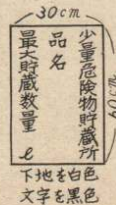 30cm
60cm
少量危険物貯蔵所
品名
最大貯蔵数量 ℓ
下地を白色
文字を黒色